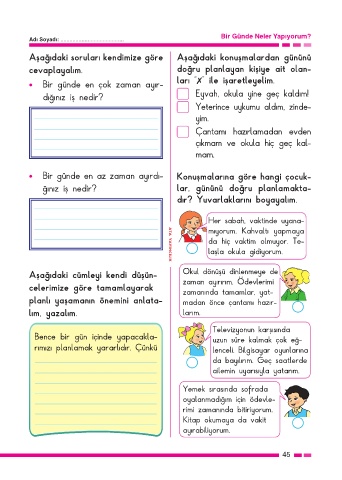 Adı Soyadı: ....................................
Bir Günde Neler Yapıyorum?
Aşağıdaki soruları kendimize göre
cevaplayalım.
• Bir günde en çok zaman ayır-
dığınız iş nedir?
• Bir günde en az zaman ayırdı-
ğınız iş nedir?
Aşağıdaki cümleyi kendi düşün-
celerimize göre tamamlayarak
planlı yaşamanın önemini anlata-
lım, yazalım.
Bence bir gün içinde yapacakla-
rımızı planlamak yararlıdır. Çünkü
Aşağıdaki konuşmalardan gününü
doğru planlayan kişiye ait olan-
ları "✗" ile işaretleyelim.
Eyvah, okula yine geç kaldım!
Yeterince uykumu aldım, zinde-
yim.
Çantamı hazırlamadan evden
çıkmam ve okula hiç geç kal-
mam.
Konuşmalarına göre hangi çocuk-
lar, gününü doğru planlamakta-
dır? Yuvarlaklarını boyayalım.
Her sabah, vaktinde uyana-
mıyorum. Kahvaltı yapmaya
da hiç vaktim olmuyor. Te-
laşla okula gidiyorum.
Okul dönüşü dinlenmeye de
zaman ayırırım. Ödevlerimi
zamanında tamamlar, yat-
madan önce çantamı hazır-
larım.
Televizyonun karşısında
uzun süre kalmak çok eğ-
lenceli. Bilgisayar oyunlarına
da bayılırım. Geç saatlerde
ailemin uyarısıyla yatarım.
Yemek sırasında sofrada
oyalanmadığım için ödevle-
rimi zamanında bitiriyorum.
Kitap okumaya da vakit
ayırabiliyorum.
45